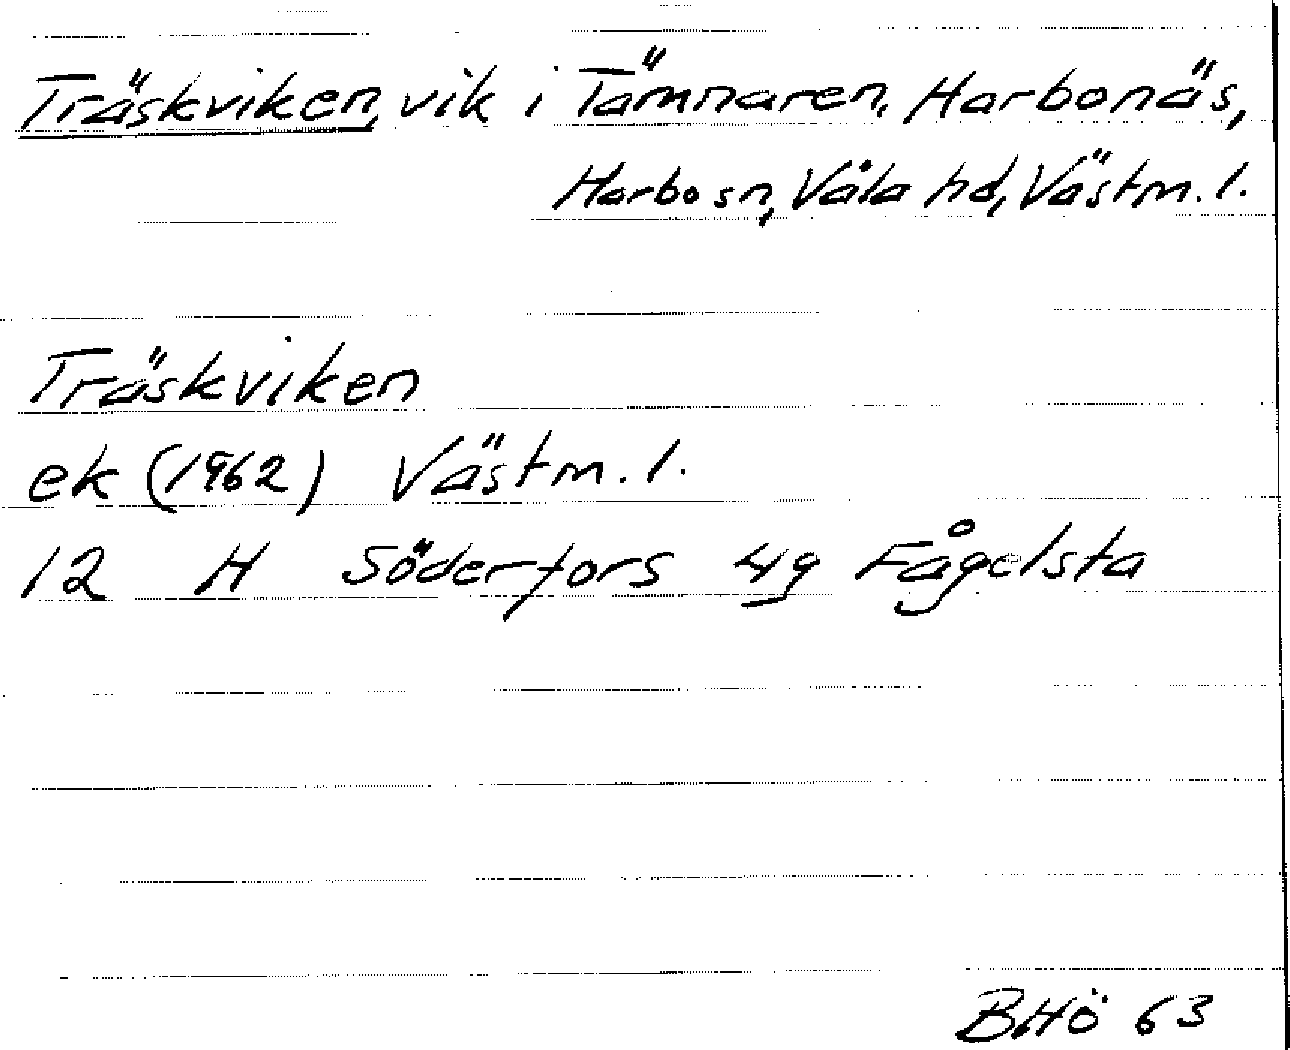 Träskviken, vik i Tämnaren, Harbonäs,
Harbo sn, Våla hd, Västm. l.
Träskviken
ek (1962) Västm. l.
12 H Söderfors 4g Fågelsta
BHÖ 63